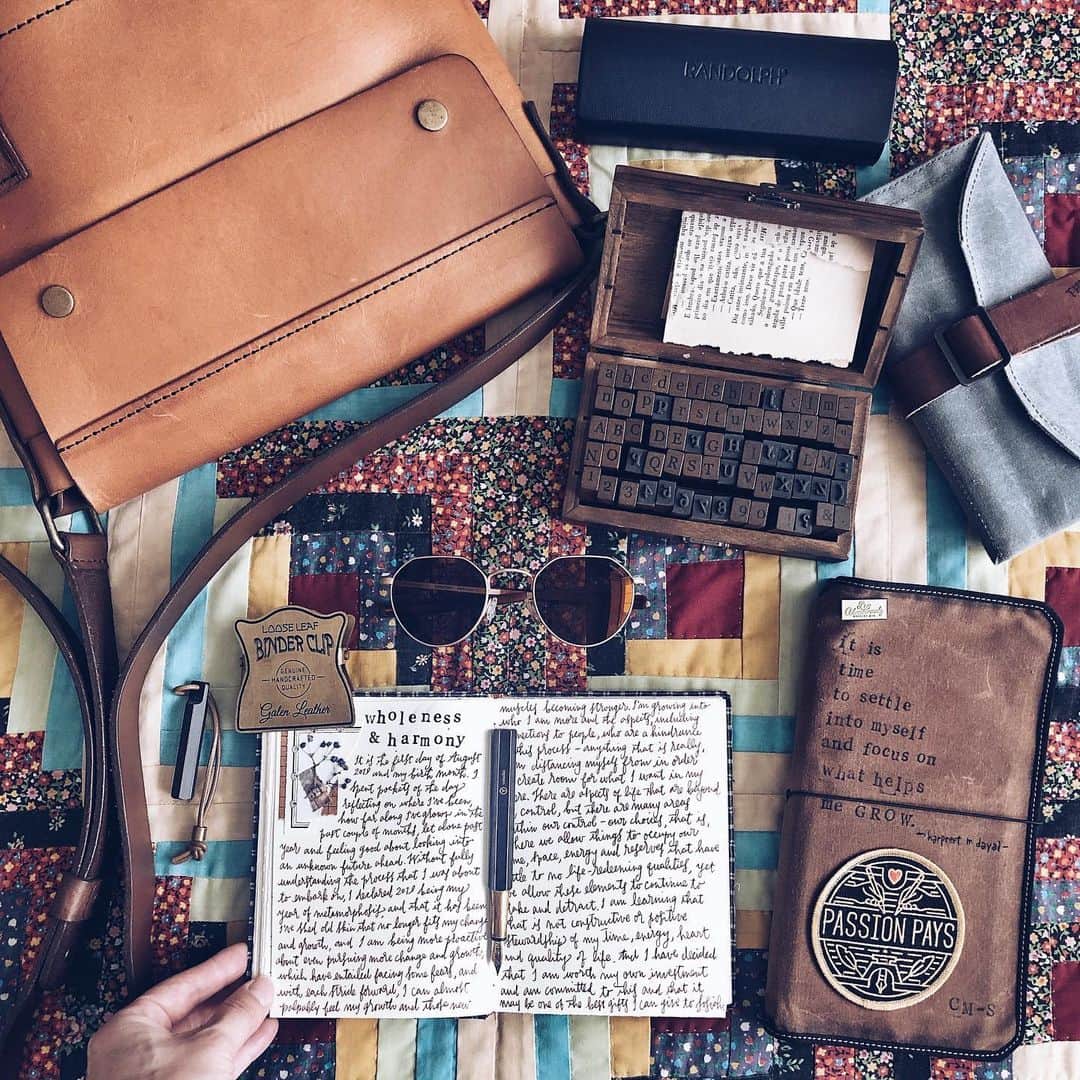 RANDOLPH
a b c d e f g h i j k l m
n o p q r s t u v w x y z
A B C D E F G H I J K L M
N O P Q R S T U V W X Y Z
1 2 3 4 5 6 7 8 9 0
LOOSE LEAF
BINDER CLIP
GENUINE
HANDCRAFTED
QUALITY
Galen Leather
wholeness
& harmony
It is the first day of August
2018 and my birth month. I
spent pockets of the day
reflecting on where I've been,
how far along I've grown in the
past couple of months, let alone past
year and feeling good about looking into
an unknown future ahead. Without fully
understanding the process that I was about
to embark on, I declared 2018 being my
year of metamorphosis and that it has been.
I've shed old skin that no longer fits my change
and growth, and I am being more proactive
about even pursuing more change and growth,
which have entailed facing some fears, and
with each stride forward, I can almost
palpably feel my growth and those new
muscles becoming stronger. I'm growing into
who I am more and the aspects, including
to people, who are a hindrance
this process - anything that is really,
am distancing myself from in order
create room for what I want in my
There are aspects of life that are beyond
control, but there are many areas
within our control - our choices, that is,
where we allow things to occupy our
time, space, energy and reserves that have
little to no life-redeeming qualities, yet
we allow these elements to continue to
take and detract. I am learning that
that is not constructive or positive
stewardship of my time, energy, heart
and quality of life. And I have decided
that I am worth my own investment
and am committed to this and that it
may be one of the best gifts I can give to
It is
time
to settle
into myself
and focus on
what helps
me GROW.
-harpreet m dayal-
PASSION PAYS
CM-S